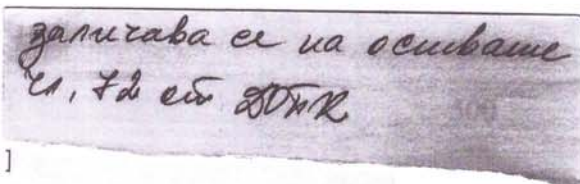 заличава се на основание
чл. 72 от ДОПК
]